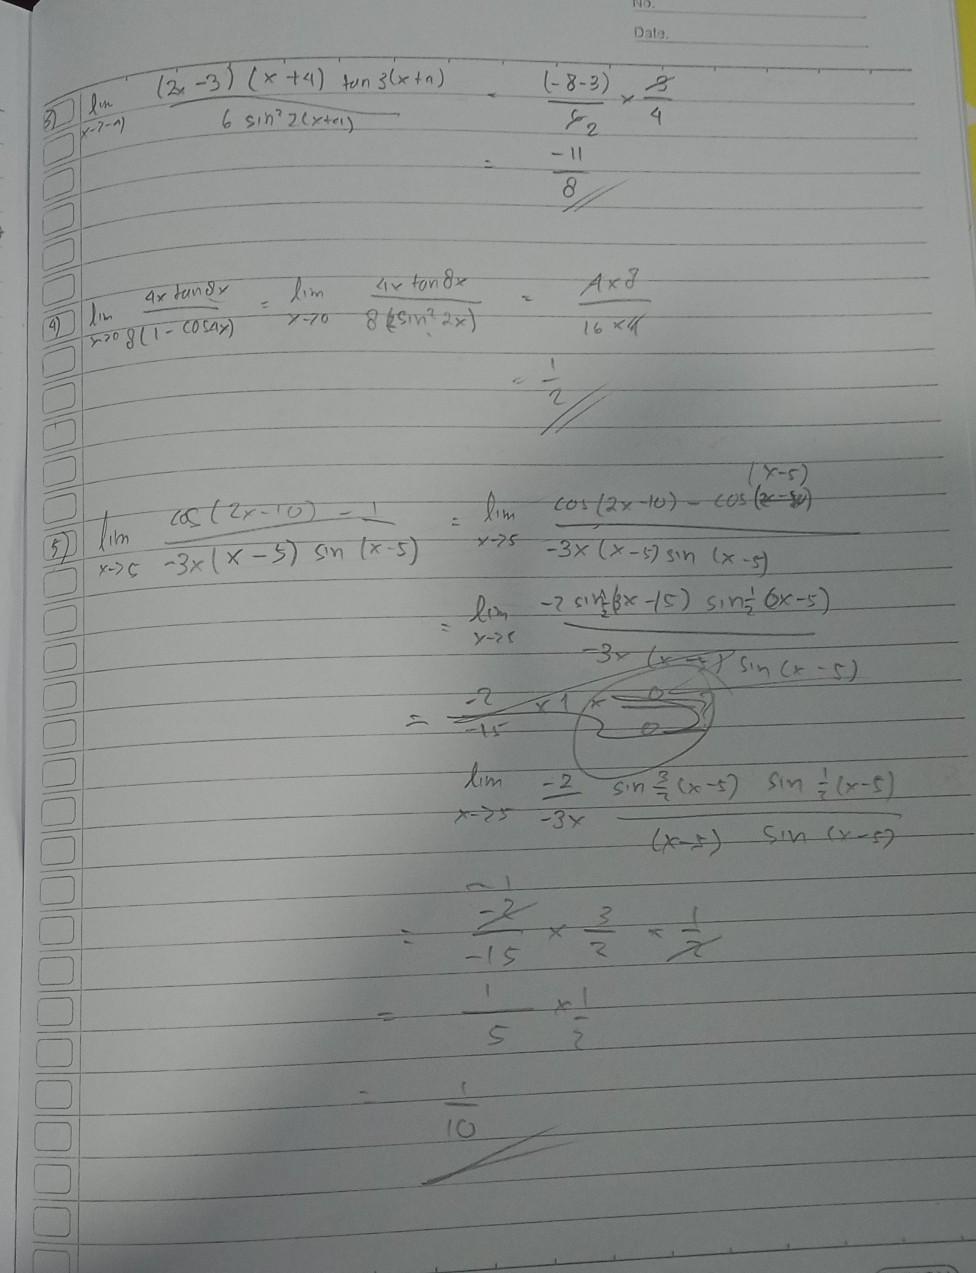 No.
Date.
3) lim x->-4 (2x-3) (x+4) tan 3(x+4) / 6 sin² 2(x+4) = (-8-3) / 6 2 x 3/4
= -11/8
4) lim x->0 4x tan 8x / 8(1 - cos 4x) = lim x->0 4x tan 8x / 8 (2 sin² 2x) = 4x8 / 16x4
= 1/2
5) lim x->5 cos (2x-10) - 1 / -3x (x-5) sin (x-5) = lim x->5 cos (2x-10) - cos (x-5) / -3x (x-5) sin (x-5)
= lim x->5 -2 sin 1/2 (3x-15) sin 1/2 (x-5) / -3x (x-5) sin (x-5)
= -2/-15 x 1 x 0/0
lim x->5 -2/-3x sin 3/2 (x-5) sin 1/2 (x-5) / (x-5) sin (x-5)
= -1 -2/-15 x 3/2 x 1/2
= 1/5 x 1/2
= 1/10